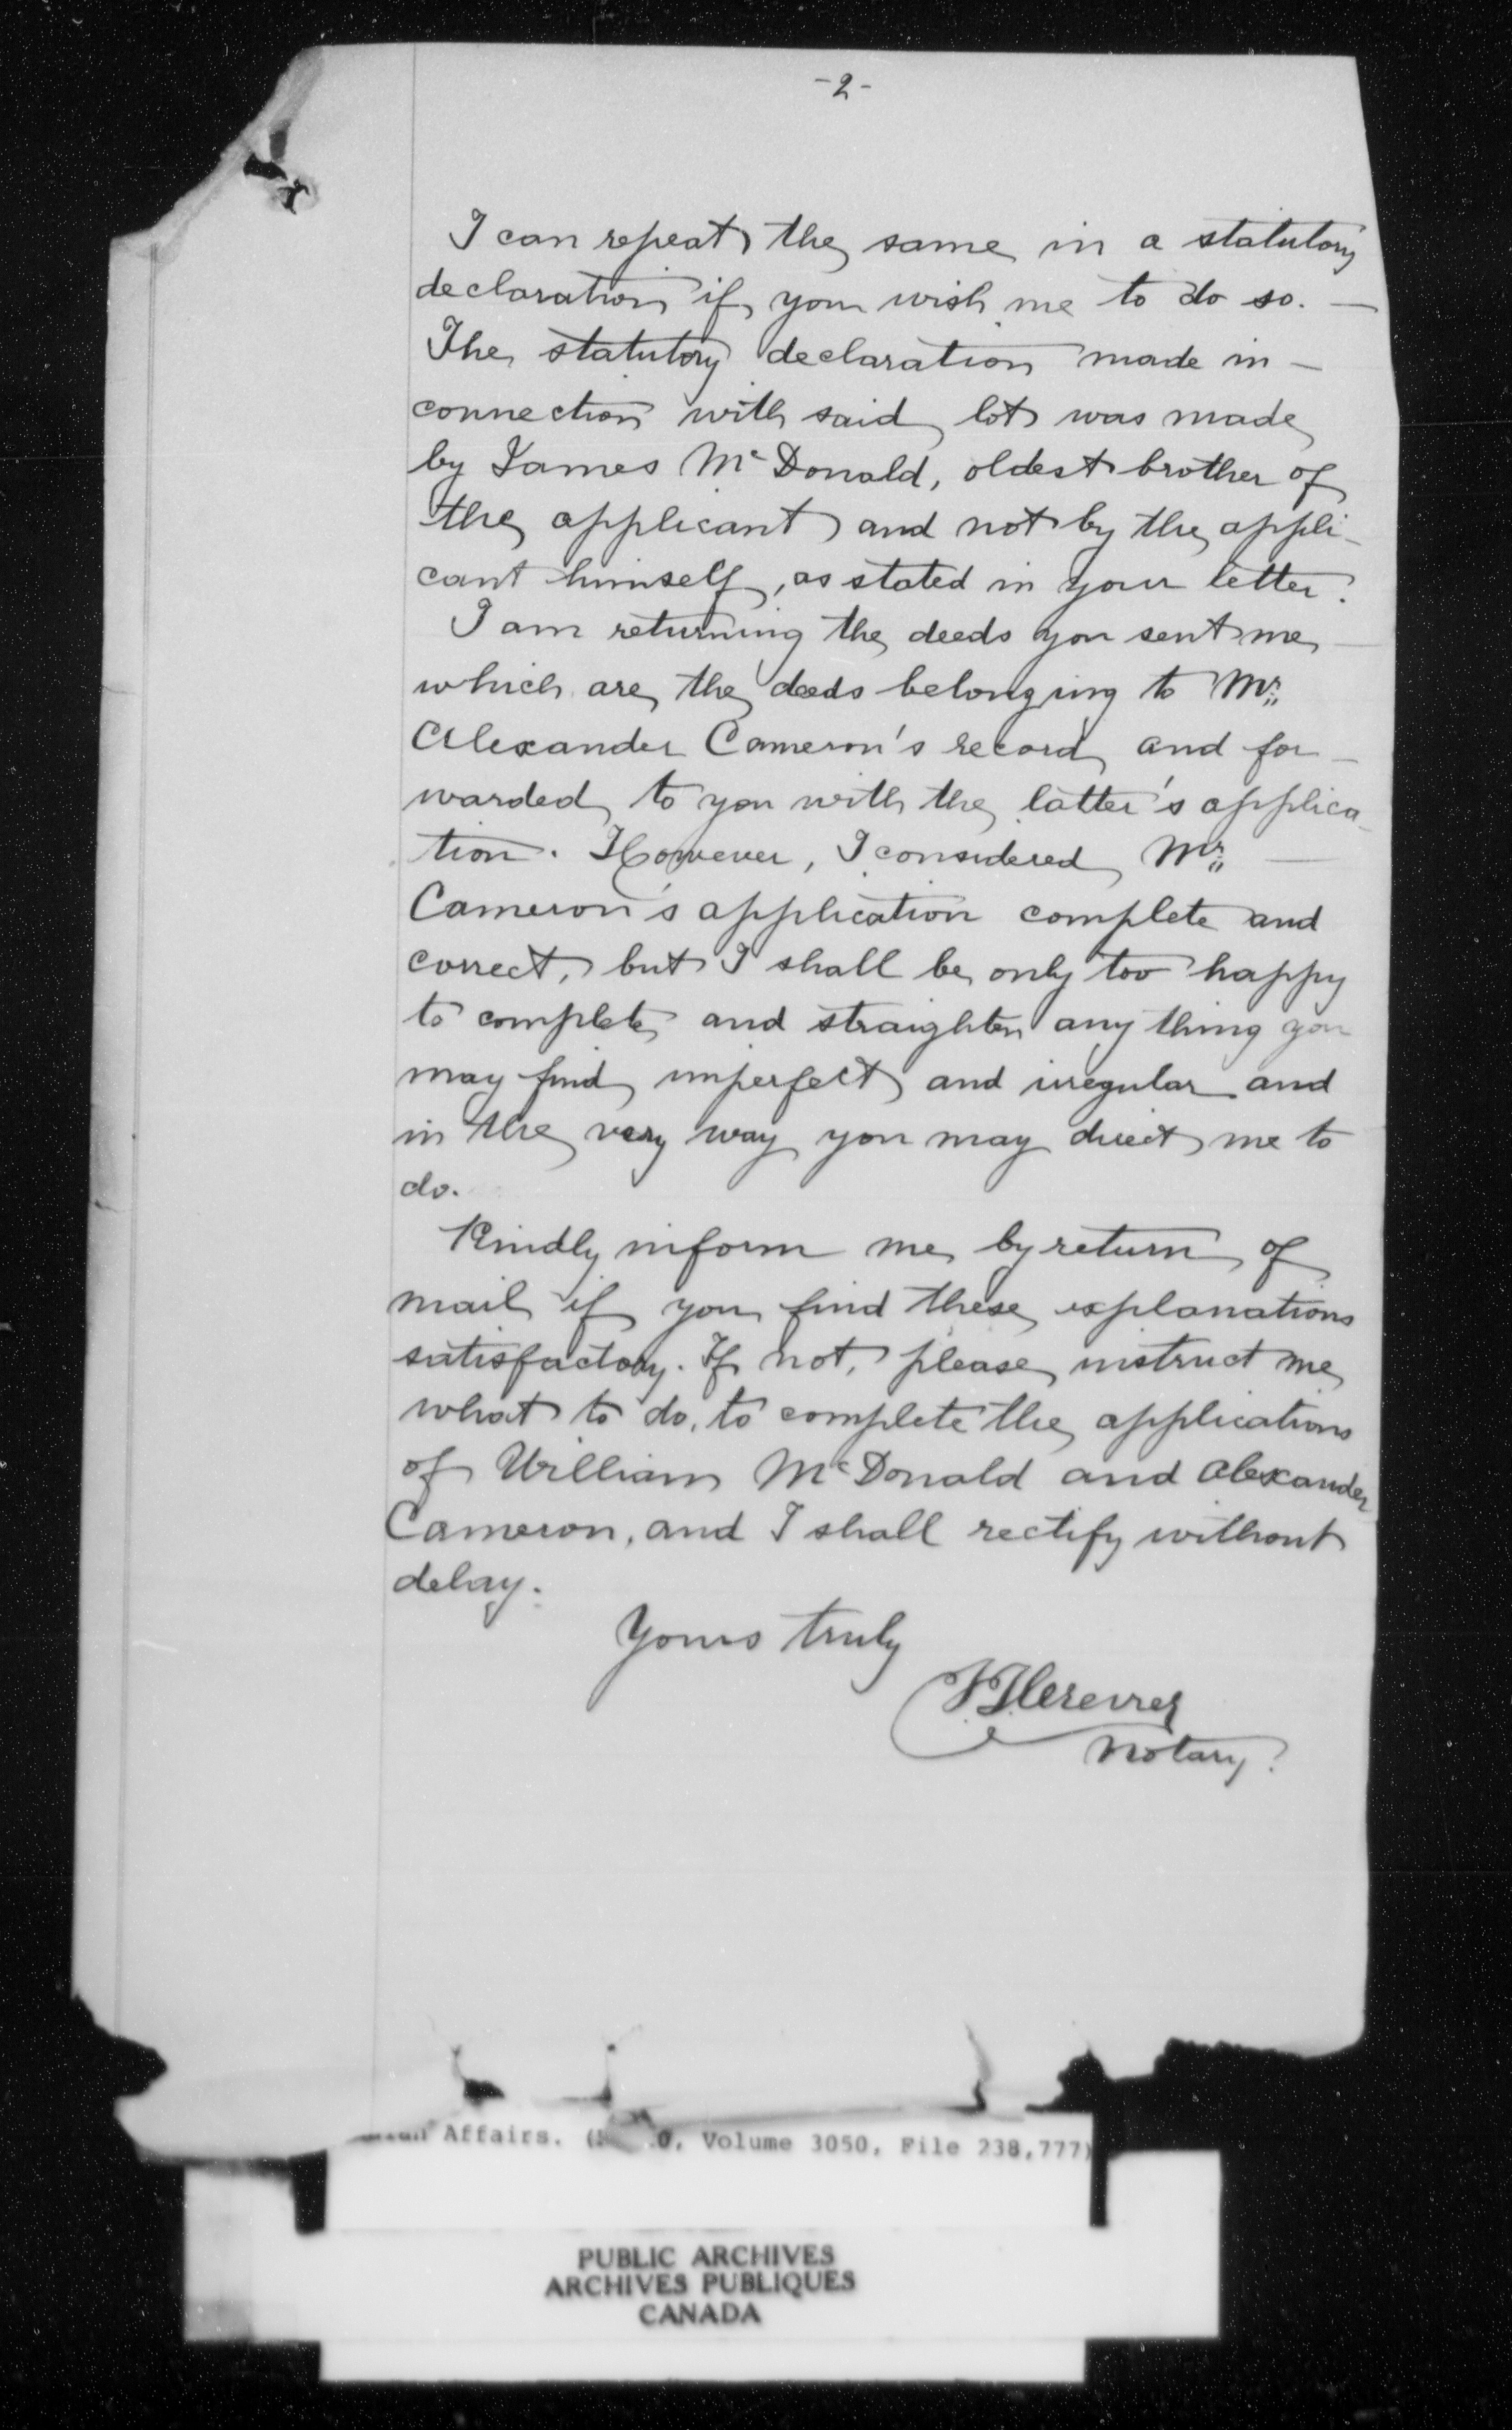 -2-
I can repeat the same in a statutory
declaration if you wish me to do so. —
The statutory declaration made in —
connection with said lot was made
by James McDonald, oldest brother of
the applicant and not by the appli-
cant himself, as stated in your letter.
I am returning the deeds you sent me —
which are the deeds belonging to Mr.
Alexander Cameron's record and for-
warded to you with the latter's applica-
tion. However, I considered Mr. —
Cameron's application complete and
correct, but I shall be only too happy
to complete and straighten any thing you
may find imperfect and irregular and
in the very way you may direct me to
do.
Kindly inform me by return of
mail if you find these explanations
satisfactory. If not, please instruct me
what to do, to complete the applications
of William McDonald and Alexander
Cameron, and I shall rectify without
delay.
Yours truly
Notary.
Affairs. ( 0, Volume 3050, File 238,777)
PUBLIC ARCHIVES
ARCHIVES PUBLIQUES
CANADA